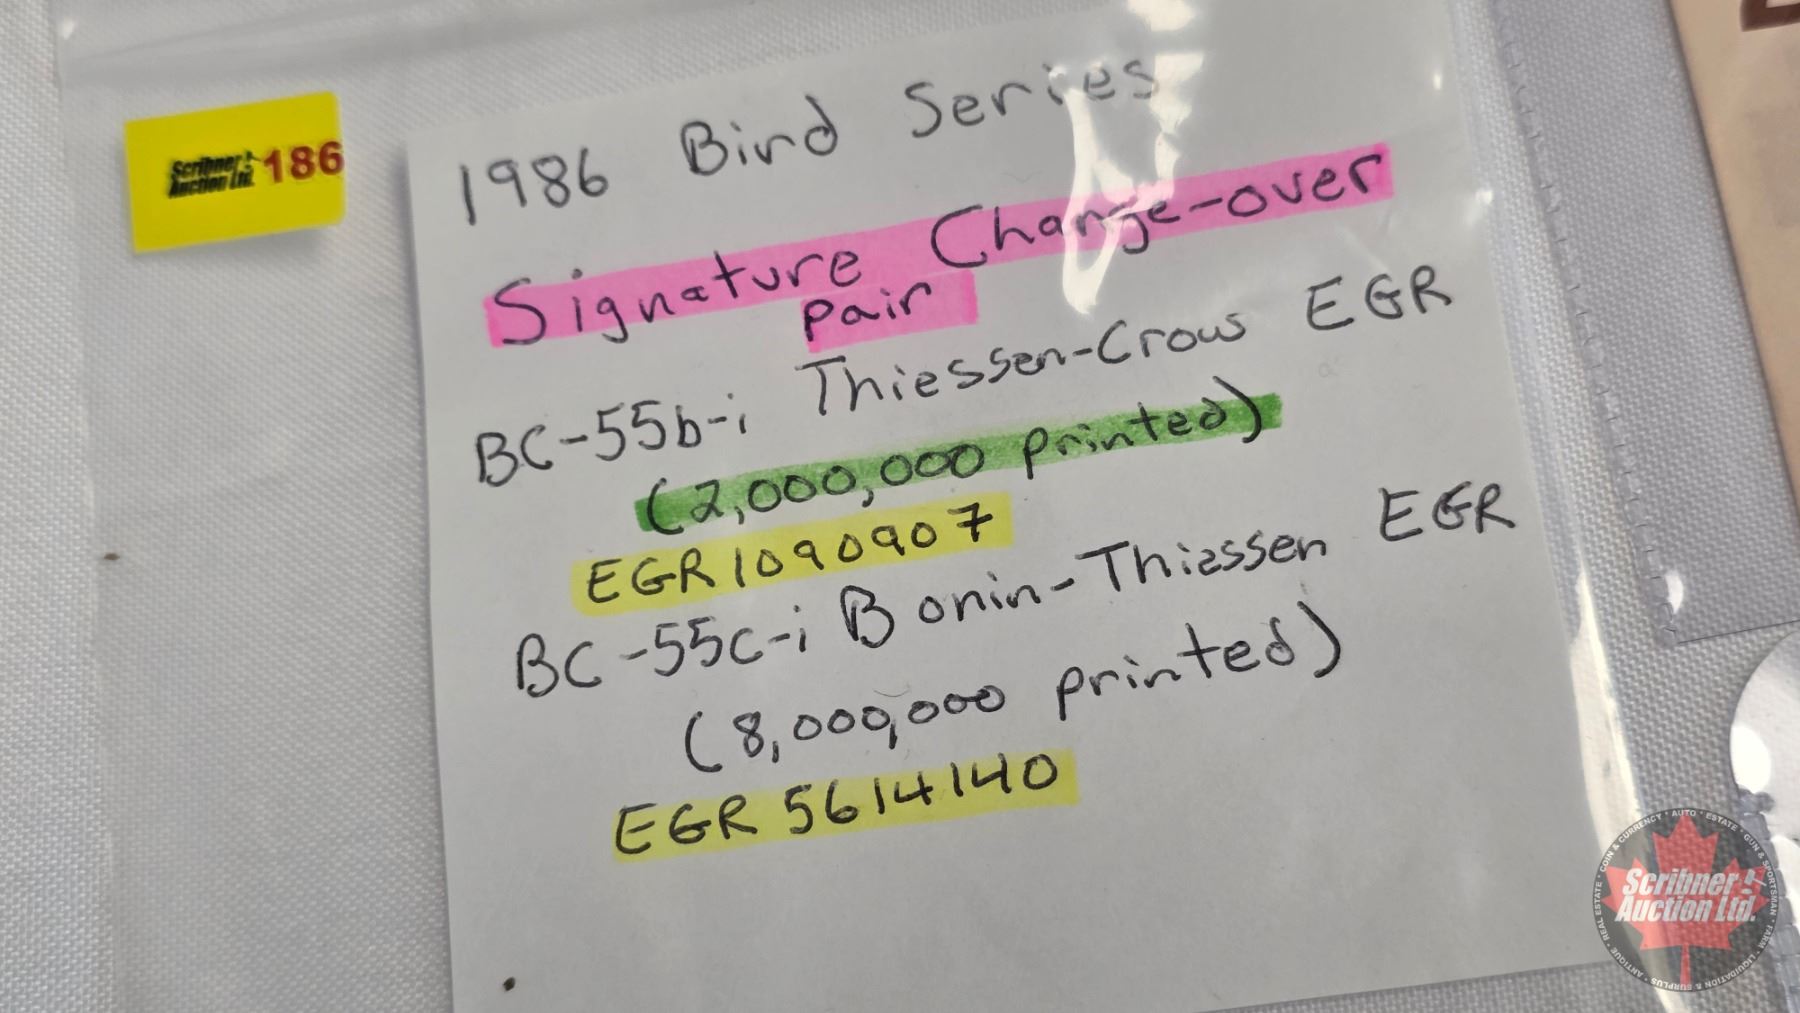 Scribner Auction Ltd. 186
1986 Bird Series
Signature Change-over
pair
BC-55b-i Thiessen-Crow EGR
(2,000,000 printed)
EGR1090907
BC-55c-i Bonin-Thiessen EGR
(8,000,000 printed)
EGR 5614140
COIN & CURRENCY • AUTO • ESTATE • GUN & SPORTSMAN • FARM • LIQUIDATION & SURPLUS • ANTIQUE • REAL ESTATE
Scribner
Auction Ltd.